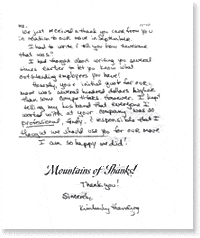 We just received a thank you card from you
in relation to our move in September.
I had to write & tell you how awesome
that was!
I had thought about writing you several
times earlier to let you know what
outstanding employees you have!
Honestly, your initial quote for our
move was several hundred dollars higher
than some competitors. However, I kept
telling my husband that everyone I
worked with at your company was so
professional & friendly. I responsible that I
thought we should use you for our move
I am so happy we did!
Mountains of Thanks!
Thank you!
Sincerely,
Kimberly